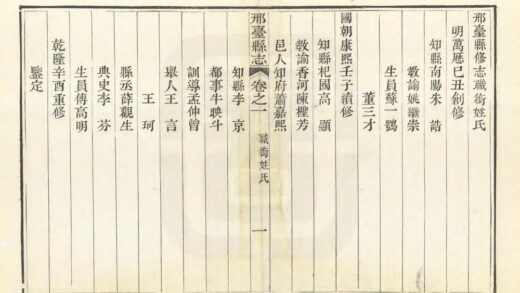 邢臺縣修志職銜姓氏
明萬曆己丑創修
知縣南陽朱誥
教諭姚繼崇
生員蘇一鶚
董三才
國朝康熙壬子續修
知縣杞國高顯
教諭香河陳檉芳
邑人知府蕭嘉熙
邢臺縣志 卷之一 職銜姓氏 一
知縣李京
都事牛映斗
訓導孟仲曾
舉人王言
王珂
縣丞薛觀生
典史李芬
生員傅高明
乾隆辛酉重修
鑒定